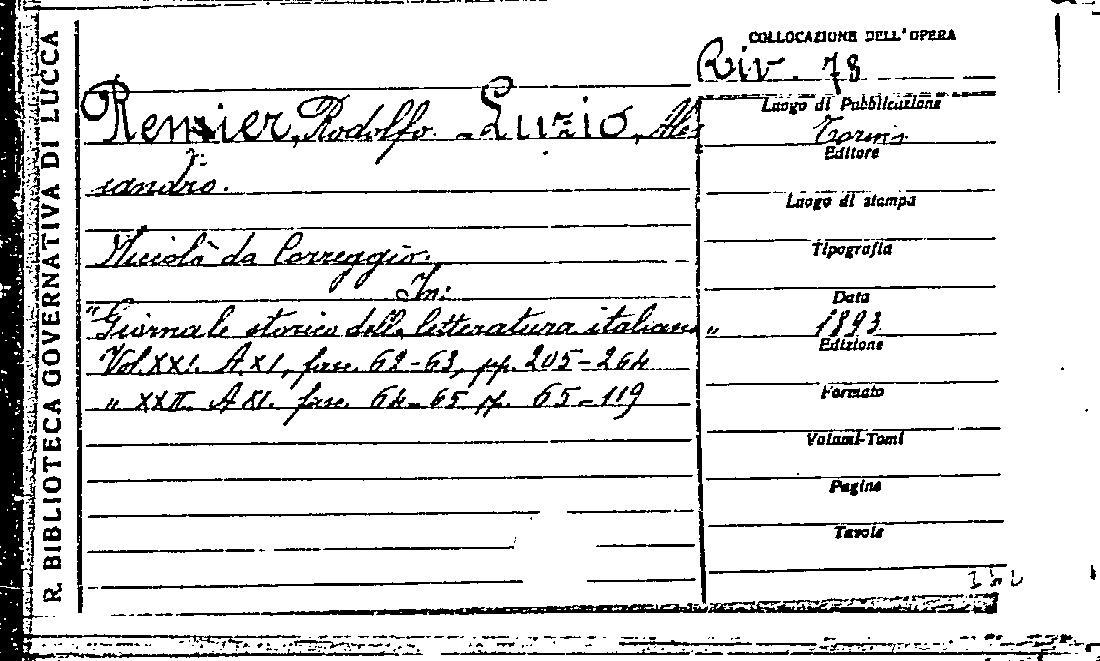 R. BIBLIOTECA GOVERNATIVA DI LUCCA
COLLOCAZIONE DELL'OPERA
Riv. 78
Renier, Rodolfo - Luzio, Ales
sandro.
Niccolò da Correggio.
In:
"Giornale storico della letteratura italiana"
Vol. XXI. A XI, fasc. 62-63, pp. 205-264
" XXII. A XI. fasc. 64-65 pp. 65-119
Luogo di Pubblicazione
Torino
Editore
Luogo di stampa
Tipografia
Data
1893
Edizione
Formato
Volumi-Tomi
Pagine
Tavole